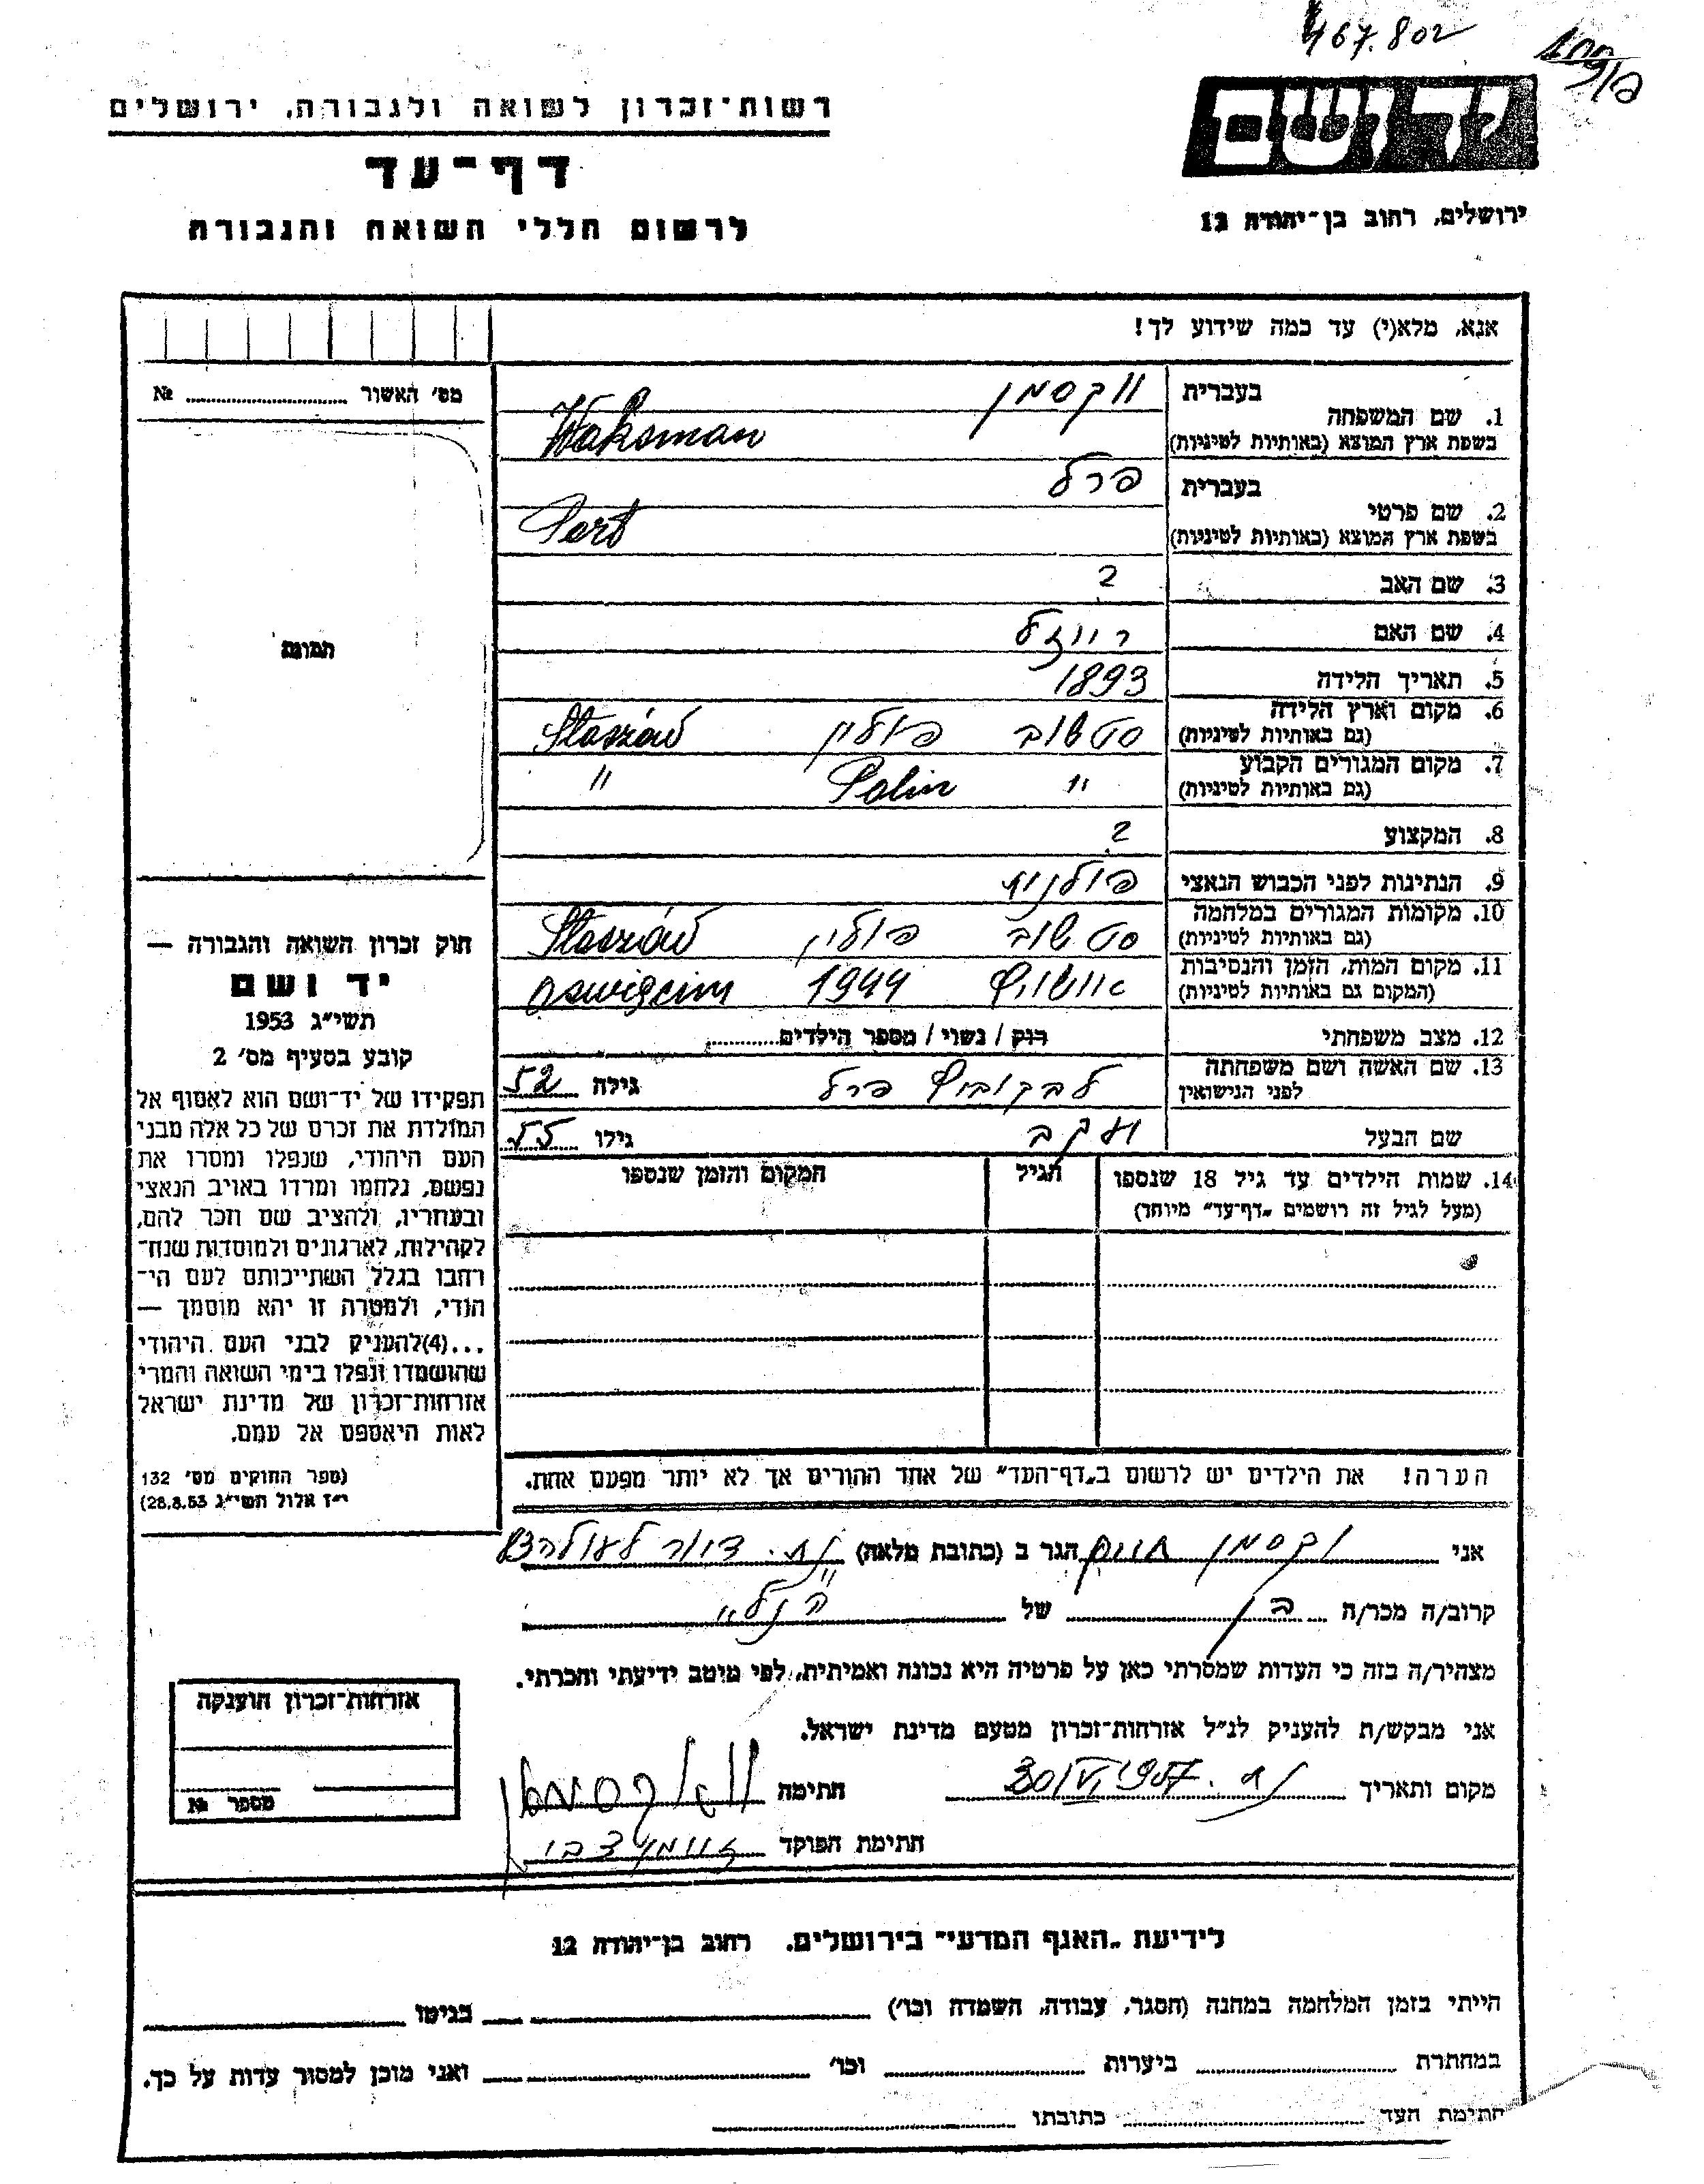 467.802
רשות־זכרון לשואה ולגבורה, ירושלים
דף־עד
לרשום חללי השואה והגבורה
יד ושם
ירושלים, רחוב בן־יהודה 12
אנא, מלא(י) עד כמה שידוע לך!
מס׳ האשור ............ №
תמונה
1. שם המשפחה
בעברית ווקסמן
בשפת ארץ המוצא (באותיות לטיניות) Waksman
2. שם פרטי
בעברית פרל
בשפת ארץ המוצא (באותיות לטיניות) Perl
3. שם האב ?
4. שם האם רויזל
5. תאריך הלידה 1893
6. מקום וארץ הלידה סטשוב פולין Staszów
(גם באותיות לטיניות)
7. מקום המגורים הקבוע " Polin "
(גם באותיות לטיניות)
8. המקצוע ?
9. הנתינות לפני הכבוש הנאצי פולנית
10. מקומות המגורים במלחמה סטשוב פולין Staszów
(גם באותיות לטיניות)
11. מקום המות, הזמן והנסיבות אוושויץ 1944 Oswięcim
(המקום גם באותיות לטיניות)
12. מצב משפחתי רוק / נשוי / מספר הילדים............
13. שם האשה ושם משפחתה לפני הנישואין לבקוביץ פרל גילה 52
שם הבעל יעקב גילו 55
14. שמות הילדים עד גיל 18 שנספו הגיל המקום והזמן שנספו
(מעל לגיל זה רושמים „דף־עד" מיוחד)
הערה! את הילדים יש לרשום ב„דף־העד" של אחד ההורים אך לא יותר מפעם אחת.
חוק זכרון השואה והגבורה —
יד ושם
תשי״ג 1953
קובע בסעיף מס׳ 2
תפקידו של יד־ושם הוא לאסוף אל
המולדת את זכרם של כל אלה מבני
העם היהודי, שנפלו ומסרו את
נפשם, נלחמו ומרדו באויב הנאצי
ובעוזריו, ולהציב שם וזכר להם,
לקהילות, לארגונים ולמוסדות שנח־
רחבו בגלל השתייכותם לעם הי־
הודי, ולמטרה זו יהא מוסמך —
...(4)להעניק לבני העם היהודי
שהושמדו ונפלו בימי השואה והמרי
אזרחות־זכרון של מדינת ישראל
לאות היאספם אל עמם.
(ספר החוקים מס׳ 132
י״ז אלול תשי״ג 28.8.53)
אני וקסמן הגר ב (כתובת מלאה) נת.
קרוב/ה מכר/ה בן של הנ״ל
מצהיר/ה בזה כי העדות שמסרתי כאן על פרטיה היא נכונה ואמיתית, לפי מיטב ידיעתי והכרתי.
אני מבקש/ת להעניק לנ״ל אזרחות־זכרון מטעם מדינת ישראל.
מקום ותאריך נת. חתימה וואקסמאן
חתימת הפוקד
אזרחות־זכרון הוענקה
מספר №
לידיעת „האגף המדעי" בירושלים. רחוב בן־יהודה 12
הייתי בזמן המלחמה במחנה (הסגר, עבודה, השמדה וכו׳) בגיטו
במחתרת ביערות וכו׳ ואני מוכן למסור עדות על כך.
חתימת העד כתובתו